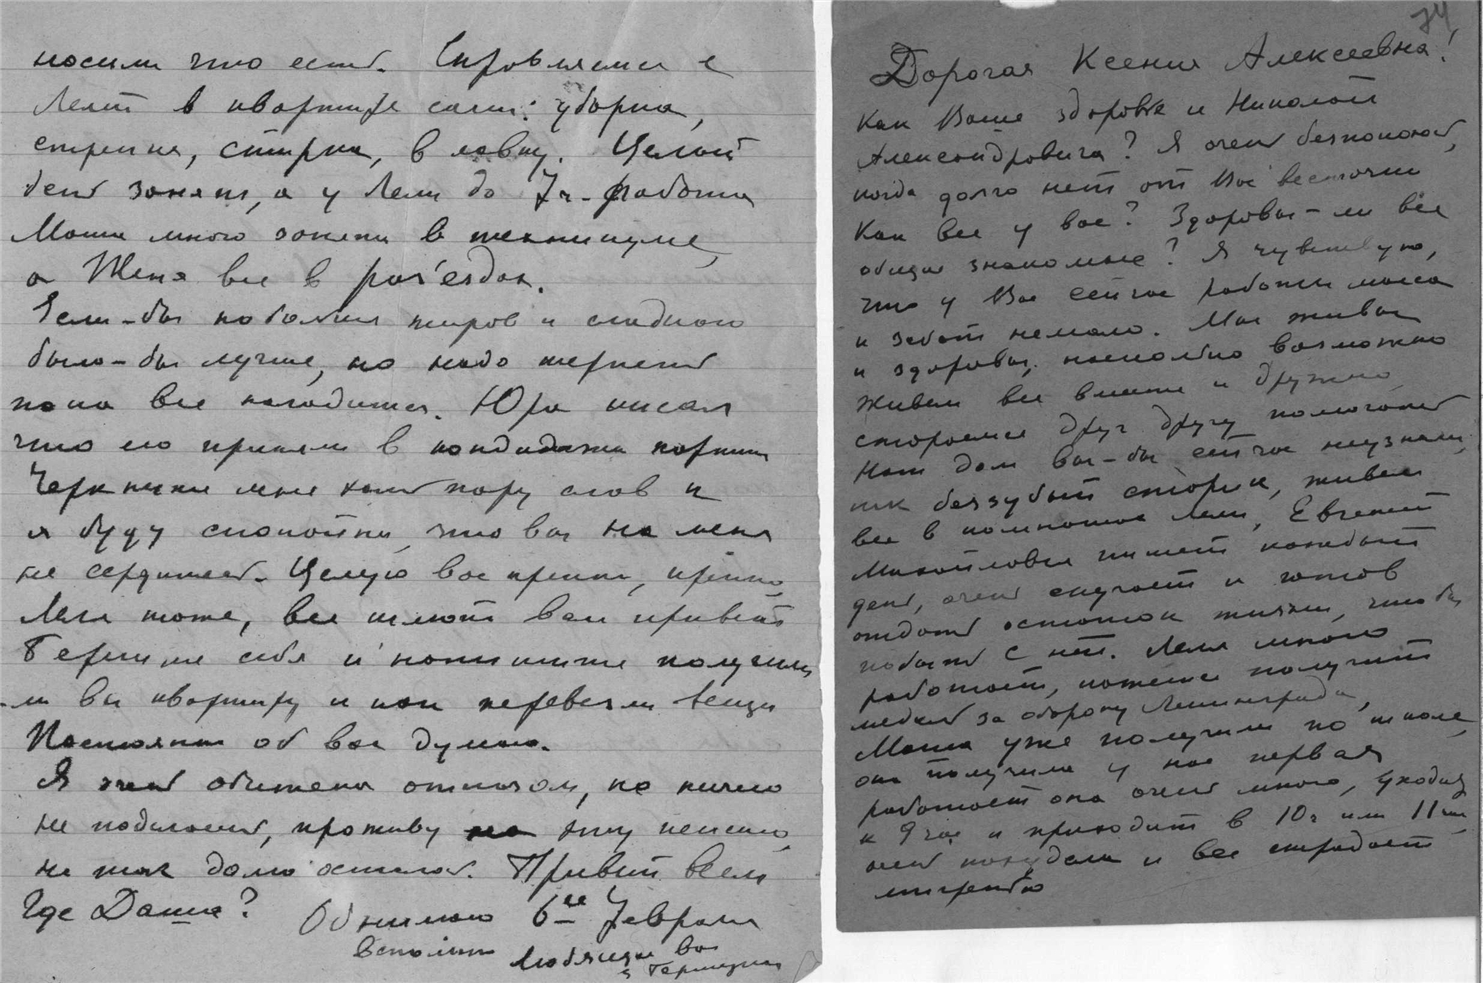 носили что есть. Справляемся с
Лелей в квартире сами: уборка,
стряпня, стирка, в лавку. Целый
день занят, а у Лели до 7 ч. работа
Маша много занята в техникуме,
а Женя все в раз'ездах.
Если-бы побольше жиров и сладкого
было-бы лучше, но надо терпеть
пока все наладится. Юра писал
что его приняли в кандидаты партии
Черкните мне хоть пару слов и
я буду спокойна, что вы на меня
не сердитесь. Целую вас крепко, крепко,
Леля тоже, все шлют вам привет
Берегите себя и напишите получили
-ли вы квартиру и как перевезли вещи
Постоянно об вас думаю.
Я очень обижена отказом, но ничего
не поделаешь, проживу на эту пенсию,
не так долго осталось. Привет всем
Где Даша? Обнимаю 6го Февраля
вспомню Любящая вас
74
Дорогая Ксения Алексеевна!
Как Ваше здоровье и Николая
Александровича? Я очень беспокоюсь,
когда долго нет от Вас весточки
Как все у вас? Здоровы-ли все
общие знакомые? Я чувствую,
что у Вас сейчас работы масса
и забот немало. Мы живы
и здоровы, насколько возможно
Живем все вместе и дружно,
стараемся друг другу помогать
Наш дом вы-бы сейчас не узнали,
как беззубый старик, живем
все в комнатах Лели, Евгений
Михайлович пишет каждый
день, очень скучает и готов
отдать остаток жизни, чтобы
побыть с ней. Леля много
работает, кажется получит
медаль за оборону Ленинграда,
Маша уже получила по школе,
она получила у нас первая
работает она очень много, уходит
к 9 час и приходит в 10ч или 11ч
очень похудела и все страдает
мигренью